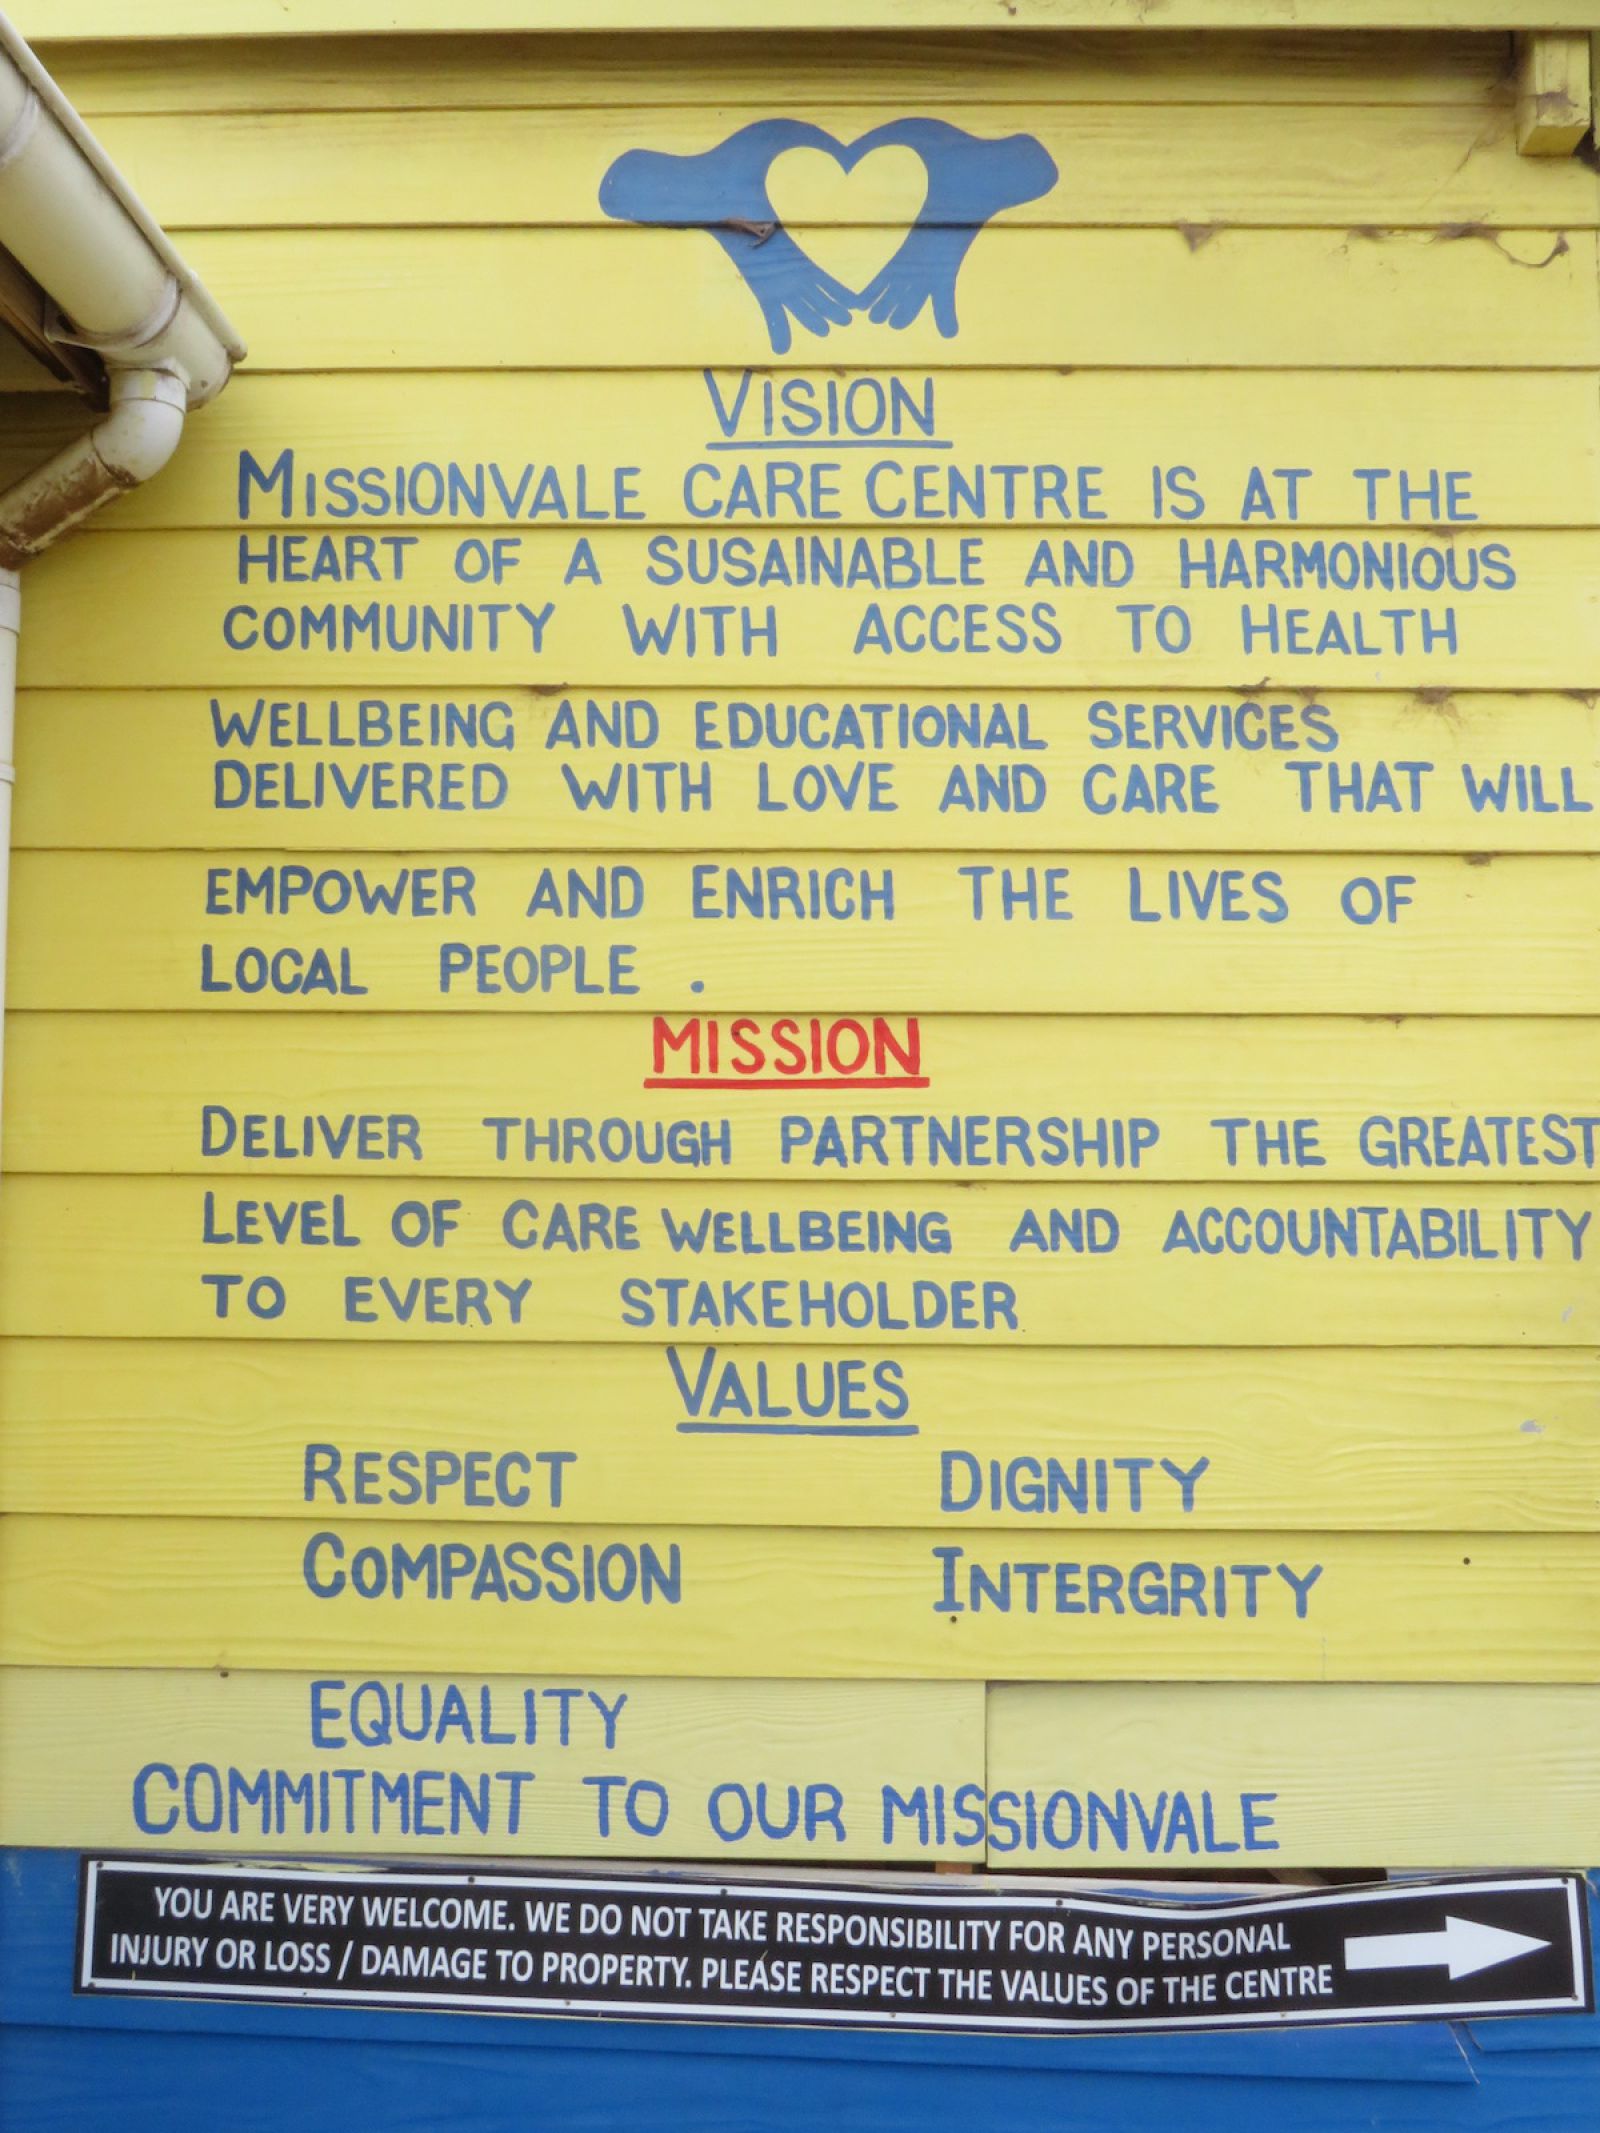 VISION
MISSIONVALE CARE CENTRE IS AT THE
HEART OF A SUSAINABLE AND HARMONIOUS
COMMUNITY WITH ACCESS TO HEALTH
WELLBEING AND EDUCATIONAL SERVICES
DELIVERED WITH LOVE AND CARE THAT WILL
EMPOWER AND ENRICH THE LIVES OF
LOCAL PEOPLE .
MISSION
DELIVER THROUGH PARTNERSHIP THE GREATEST
LEVEL OF CARE WELLBEING AND ACCOUNTABILITY
TO EVERY STAKEHOLDER
VALUES
RESPECT DIGNITY
COMPASSION INTERGRITY
EQUALITY
COMMITMENT TO OUR MISSIONVALE
YOU ARE VERY WELCOME. WE DO NOT TAKE RESPONSIBILITY FOR ANY PERSONAL
INJURY OR LOSS / DAMAGE TO PROPERTY. PLEASE RESPECT THE VALUES OF THE CENTRE